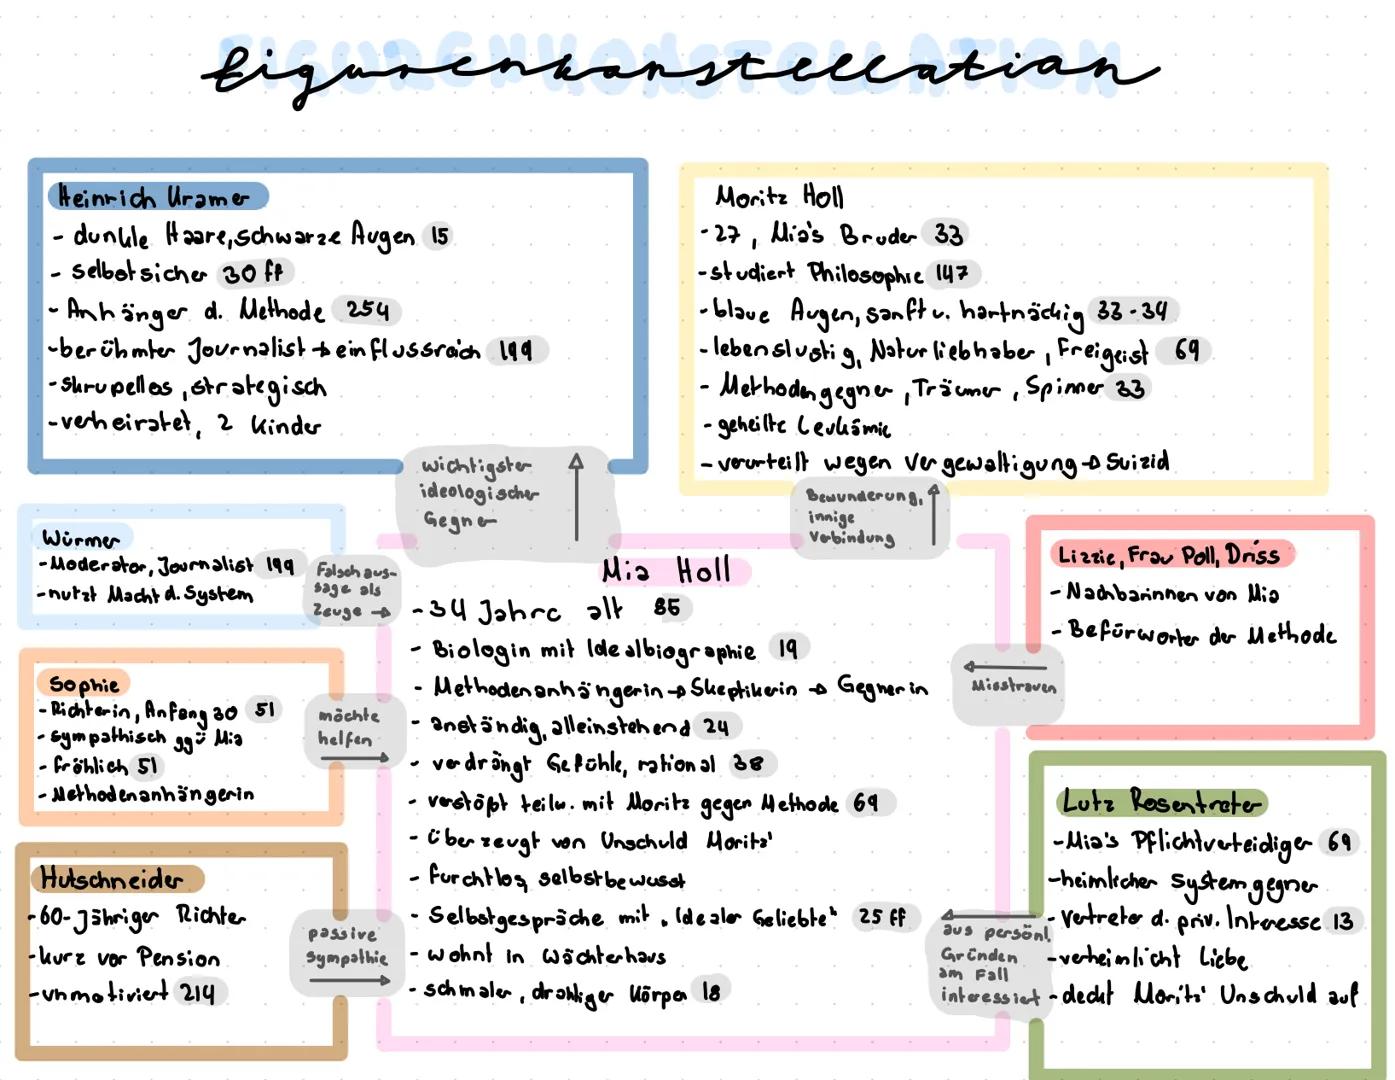 Figurenkonstellation
Heinrich Kramer
- dunkle Haare, schwarze Augen 15
- selbstsicher 30 ff
- Anhänger d. Methode 254
- berühmter Journalist → einflussreich 199
- skrupellos, strategisch
- verheiratet, 2 Kinder
Moritz Holl
- 27, Mia's Bruder 33
- studiert Philosophie 147
- blaue Augen, sanft u. hartnäckig 33-34
- lebenslustig, Naturliebhaber, Freigeist 69
- Methodengegner, Träumer, Spinner 33
- geheilte Leukämie
- verurteilt wegen Vergewaltigung → Suizid
wichtigster
ideologischer
Gegner
Bewunderung,
innige
Verbindung
Würmer
- Moderator, Journalist 199
- nutzt Macht d. System
Falschaus-
sage als
Zeuge →
Sophie
- Richterin, Anfang 30 51
- sympathisch ggü Mia
- fröhlich 51
- Methodenanhängerin
möchte
helfen
Hutschneider
- 60-Jähriger Richter
- kurz vor Pension
- unmotiviert 214
passive
Sympathie
Mia Holl
- 34 Jahre alt 85
- Biologin mit Idealbiographie 19
- Methodenanhängerin → Skeptikerin → Gegnerin
- anständig, alleinstehend 24
- verdrängt Gefühle, rational 38
- verstößt teilw. mit Moritz gegen Methode 69
- überzeugt von Unschuld Moritz'
- furchtlos, selbstbewusst
- Selbstgespräche mit "Idealer Geliebte" 25 ff
- wohnt in Wächterhaus
- schmaler, drahtiger Körper 18
Lizzie, Frau Poll, Driss
- Nachbarinnen von Mia
- Befürworter der Methode
Misstrauen
Lutz Rosentreter
- Mia's Pflichtverteidiger 69
- heimlicher Systemgegner
- Vertreter d. priv. Interesse 13
- verheimlicht Liebe
- deckt Moritz' Unschuld auf
aus persönl.
Gründen
am Fall
interessiert